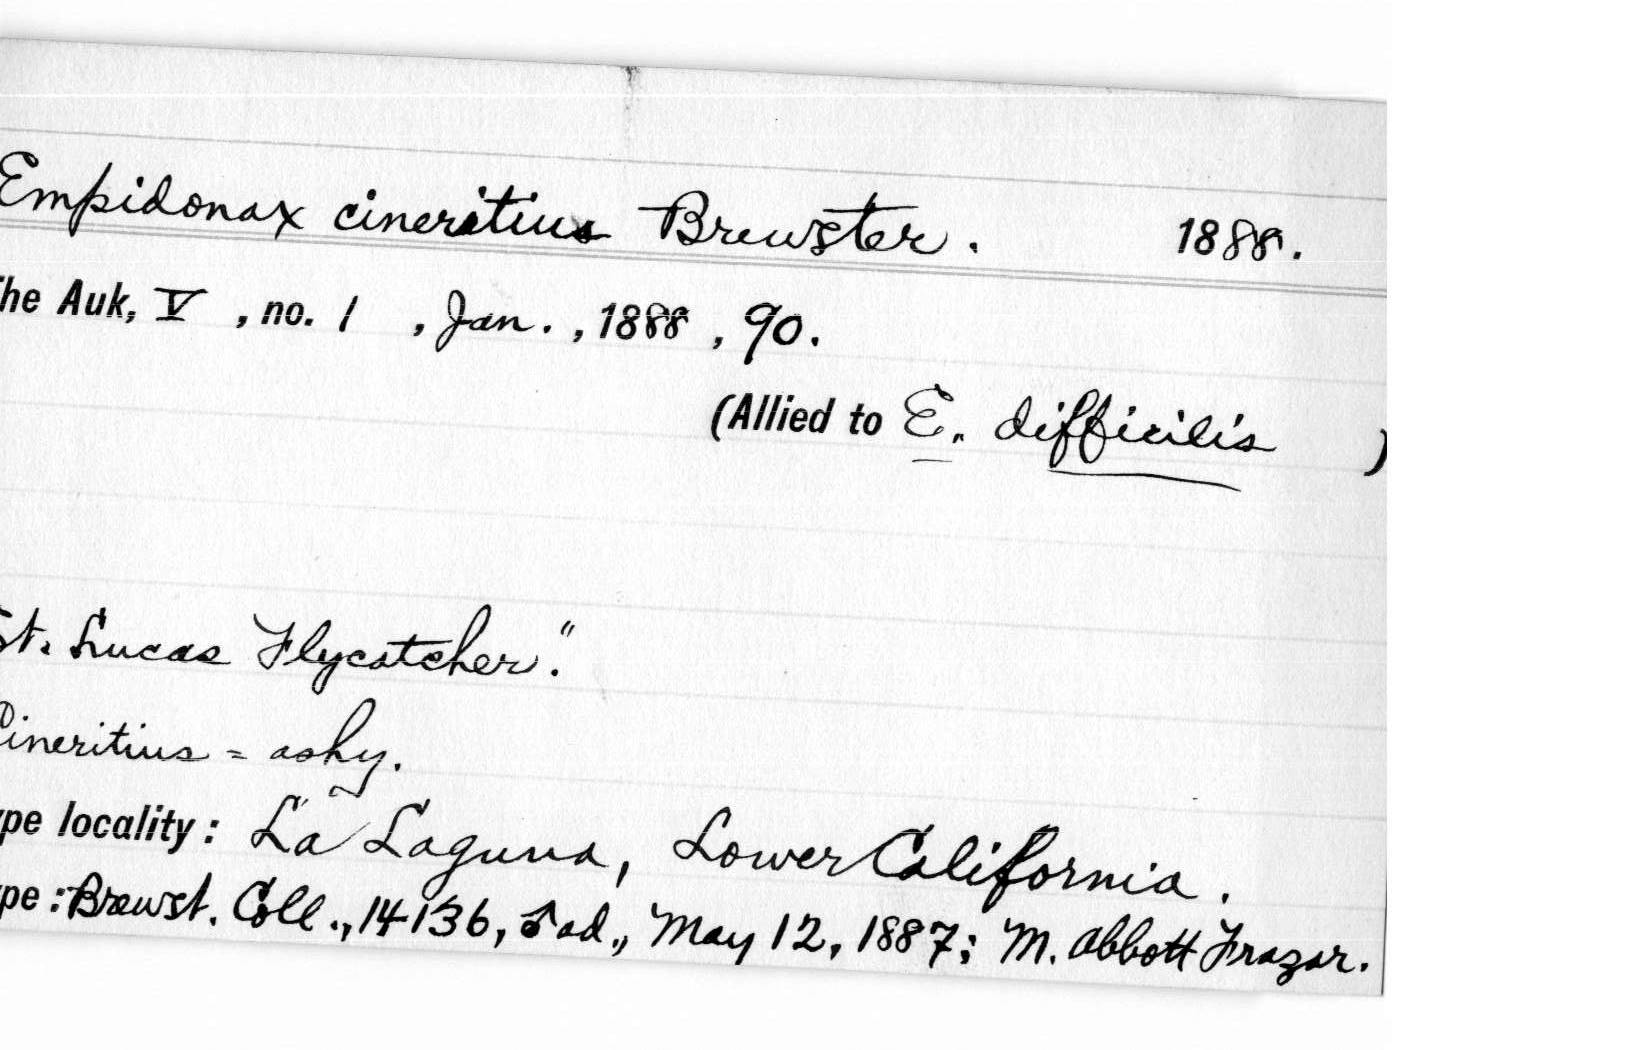 Empidonax cineritius Brewster. 1888.
he Auk, V, no. 1, Jan., 1888, 90.
(Allied to E. difficilis )
St. Lucas Flycatcher."
Cineritius = ashy.
ype locality: La Laguna, Lower California.
ype: Brewst. Coll., 14136, ♂ ad., May 12, 1887; M. Abbott Frazar.